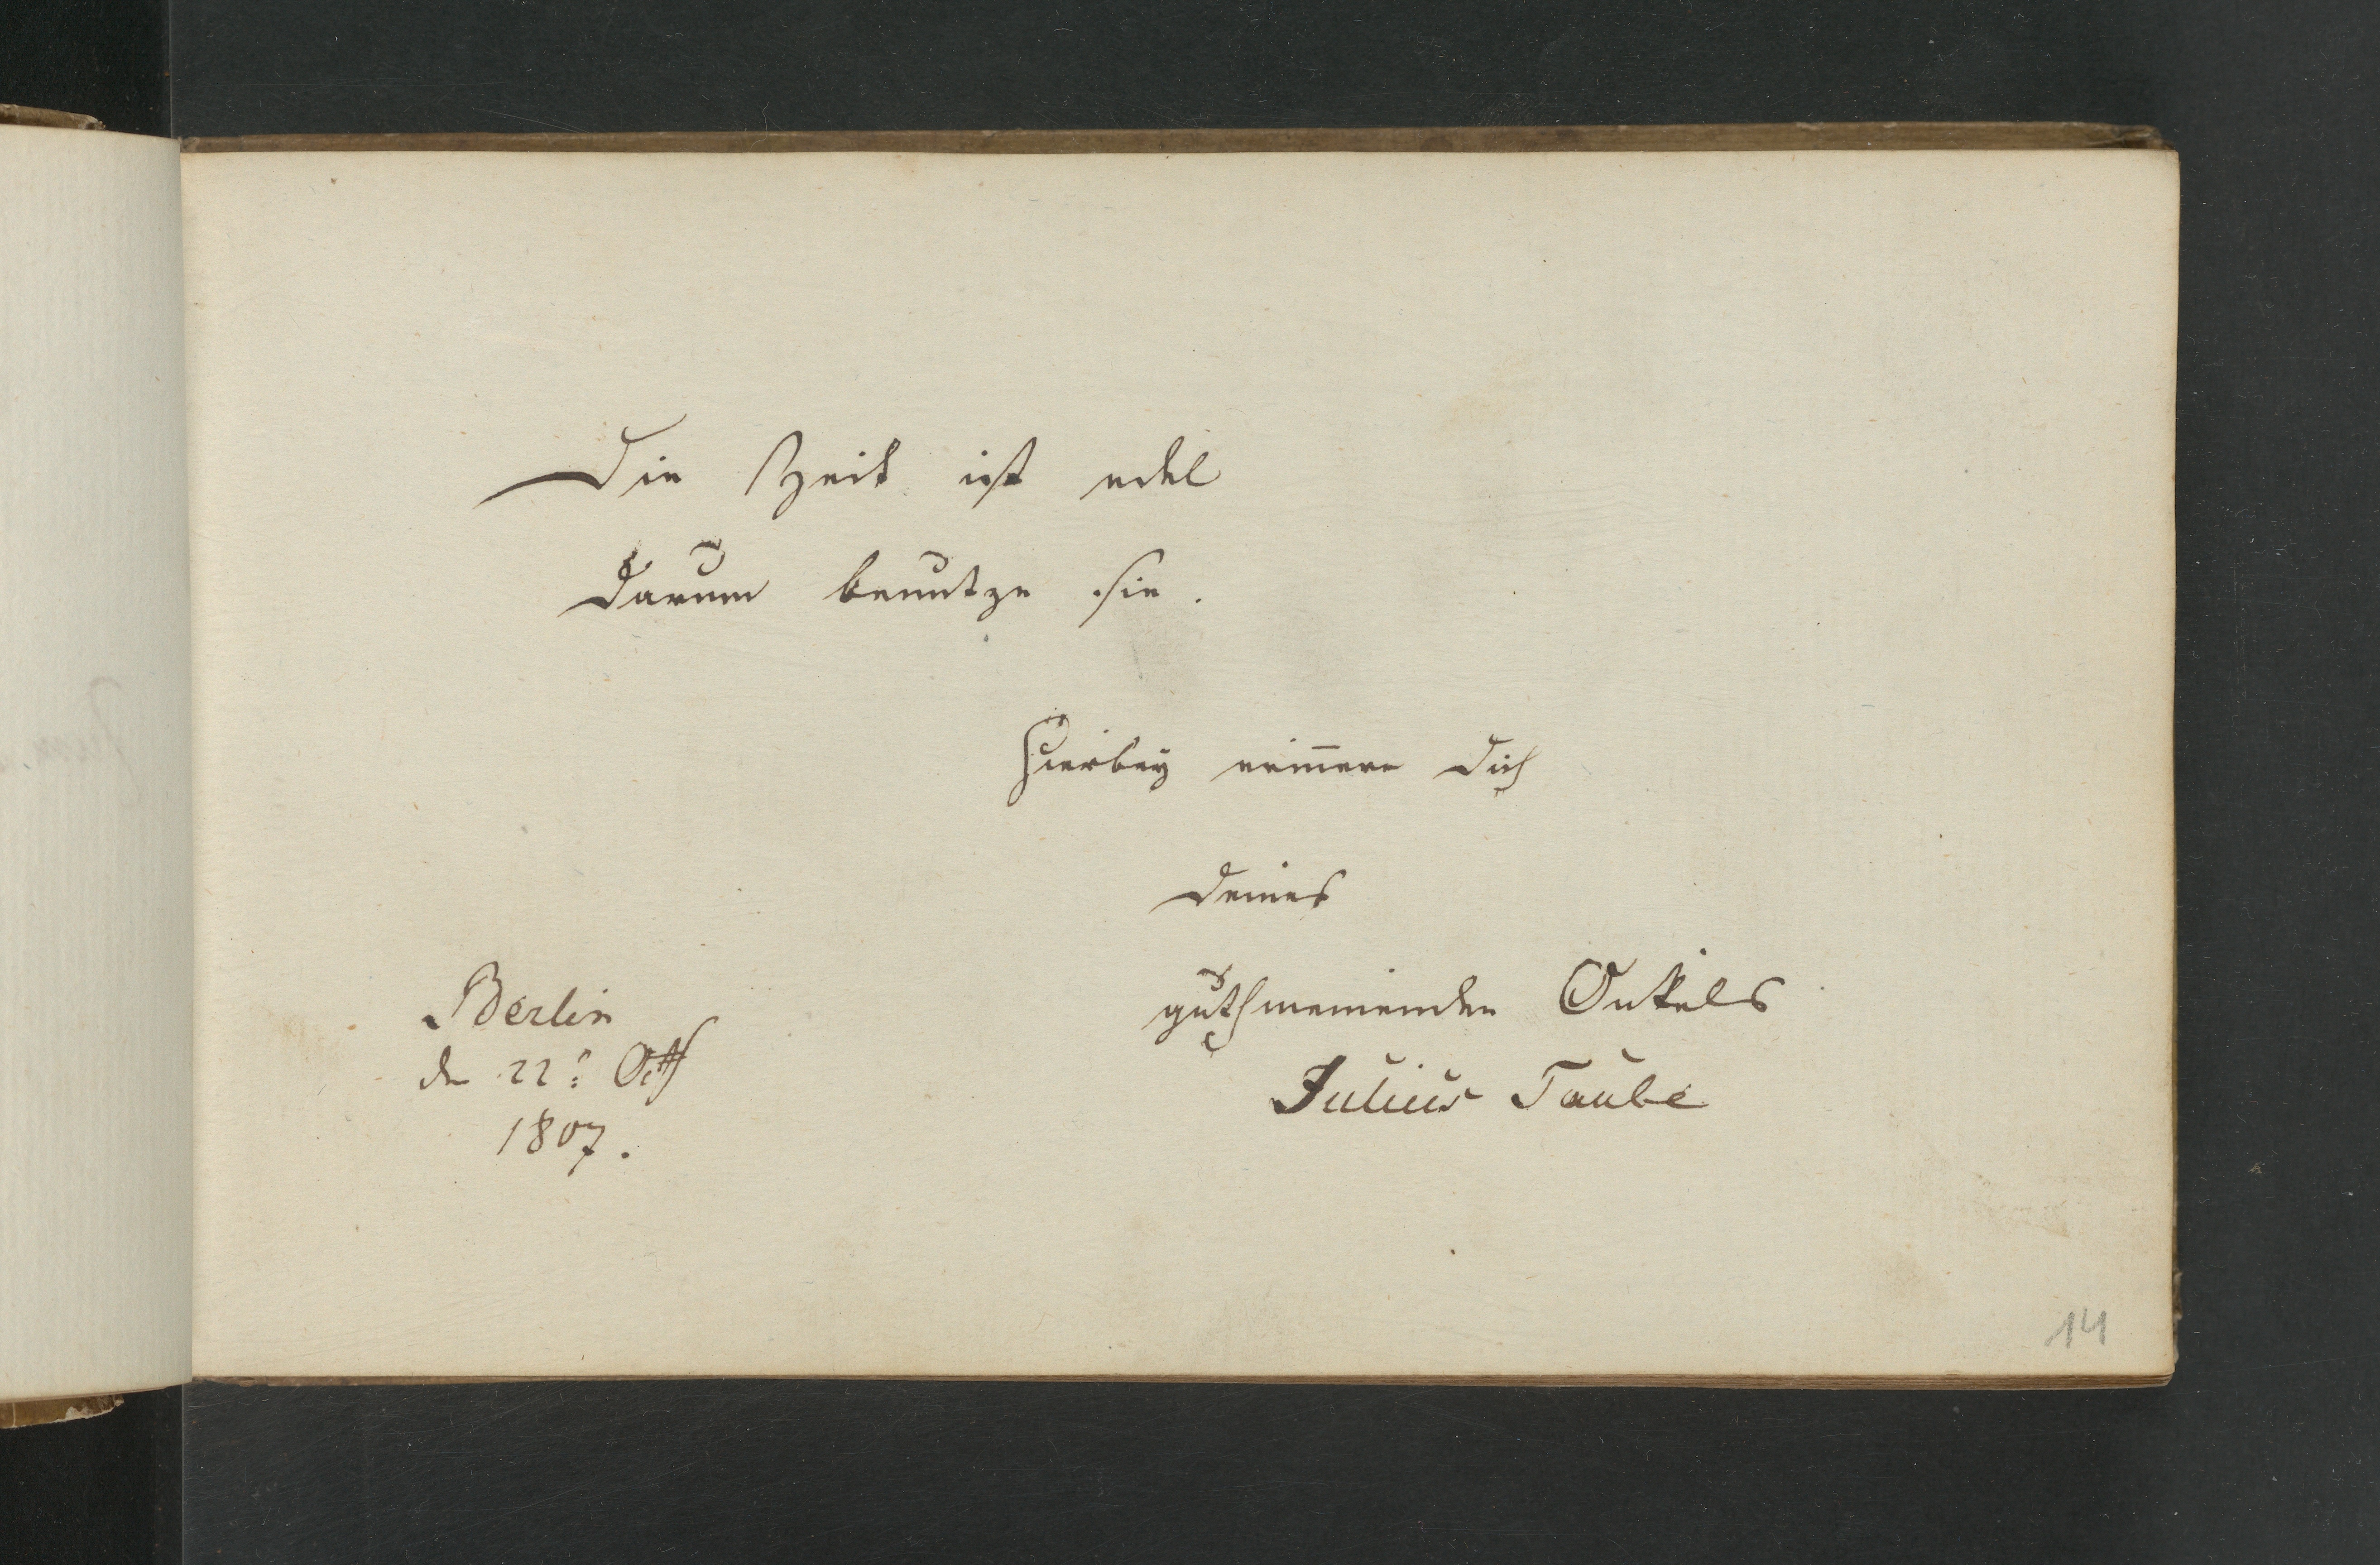 Die Zeit ist edel
Darum benutze sie.
Hierbey erinnere Dich
Deines
guthmeinenden Onkels
Julius Taube
Berlin
den 22: Octr
1807.
14